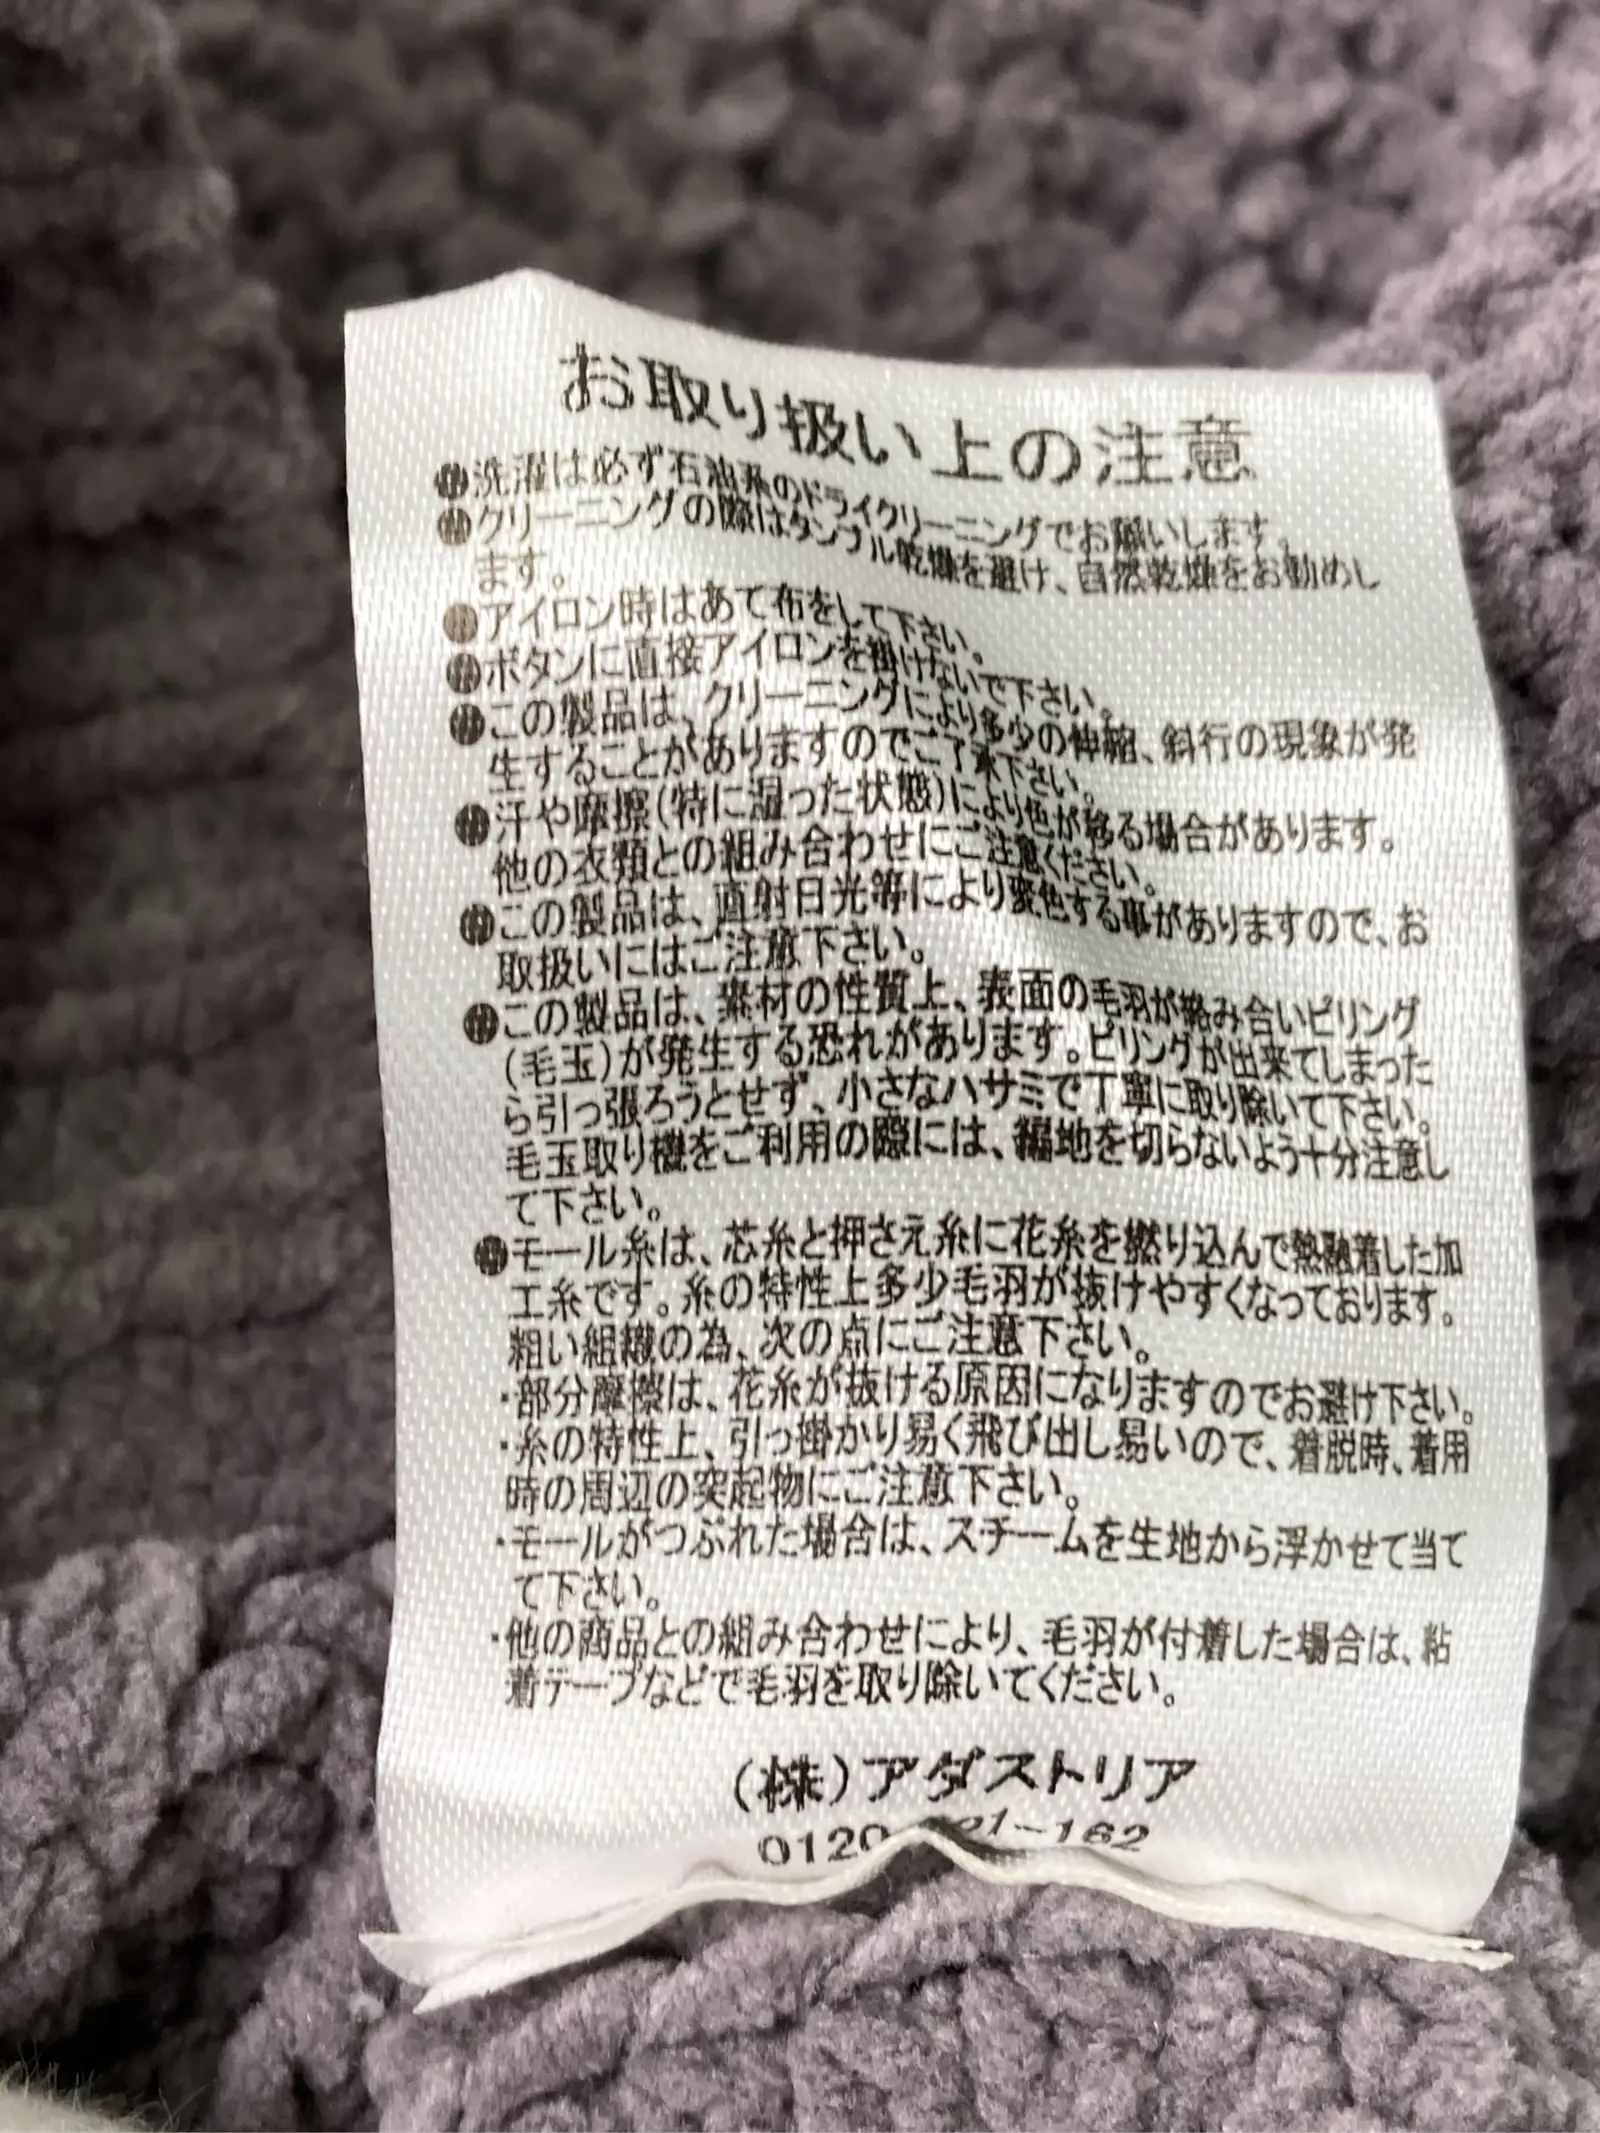 お取り扱い上の注意
●洗濯は必ず石油系のドライクリーニングでお願いします。
●クリーニングの際はタンブル乾燥を避け、自然乾燥をお勧めし
ます。
●アイロン時はあて布をして下さい。
●ボタンに直接アイロンを掛けないで下さい。
●この製品は、クリーニングにより多少の伸縮、斜行の現象が発
生することがありますのでご了承下さい。
●汗や摩擦(特に湿った状態)により色が移る場合があります。
他の衣類との組み合わせにご注意ください。
●この製品は、直射日光等により変色する事がありますので、お
取扱いにはご注意下さい。
●この製品は、素材の性質上、表面の毛羽が絡み合いピリング
(毛玉)が発生する恐れがあります。ピリングが出来てしまった
ら引っ張ろうとせず、小さなハサミで丁寧に取り除いて下さい。
毛玉取り機をご利用の際には、編地を切らないよう十分注意し
て下さい。
●モール糸は、芯糸と押さえ糸に花糸を撚り込んで熱融着した加
工糸です。糸の特性上多少毛羽が抜けやすくなっております。
粗い組織の為、次の点にご注意下さい。
・部分摩擦は、花糸が抜ける原因になりますのでお避け下さい。
・糸の特性上、引っ掛かり易く飛び出し易いので、着脱時、着用
時の周辺の突起物にご注意下さい。
・モールがつぶれた場合は、スチームを生地から浮かせて当て
て下さい。
・他の商品との組み合わせにより、毛羽が付着した場合は、粘
着テープなどで毛羽を取り除いてください。
(株)アダストリア
0120 01-162